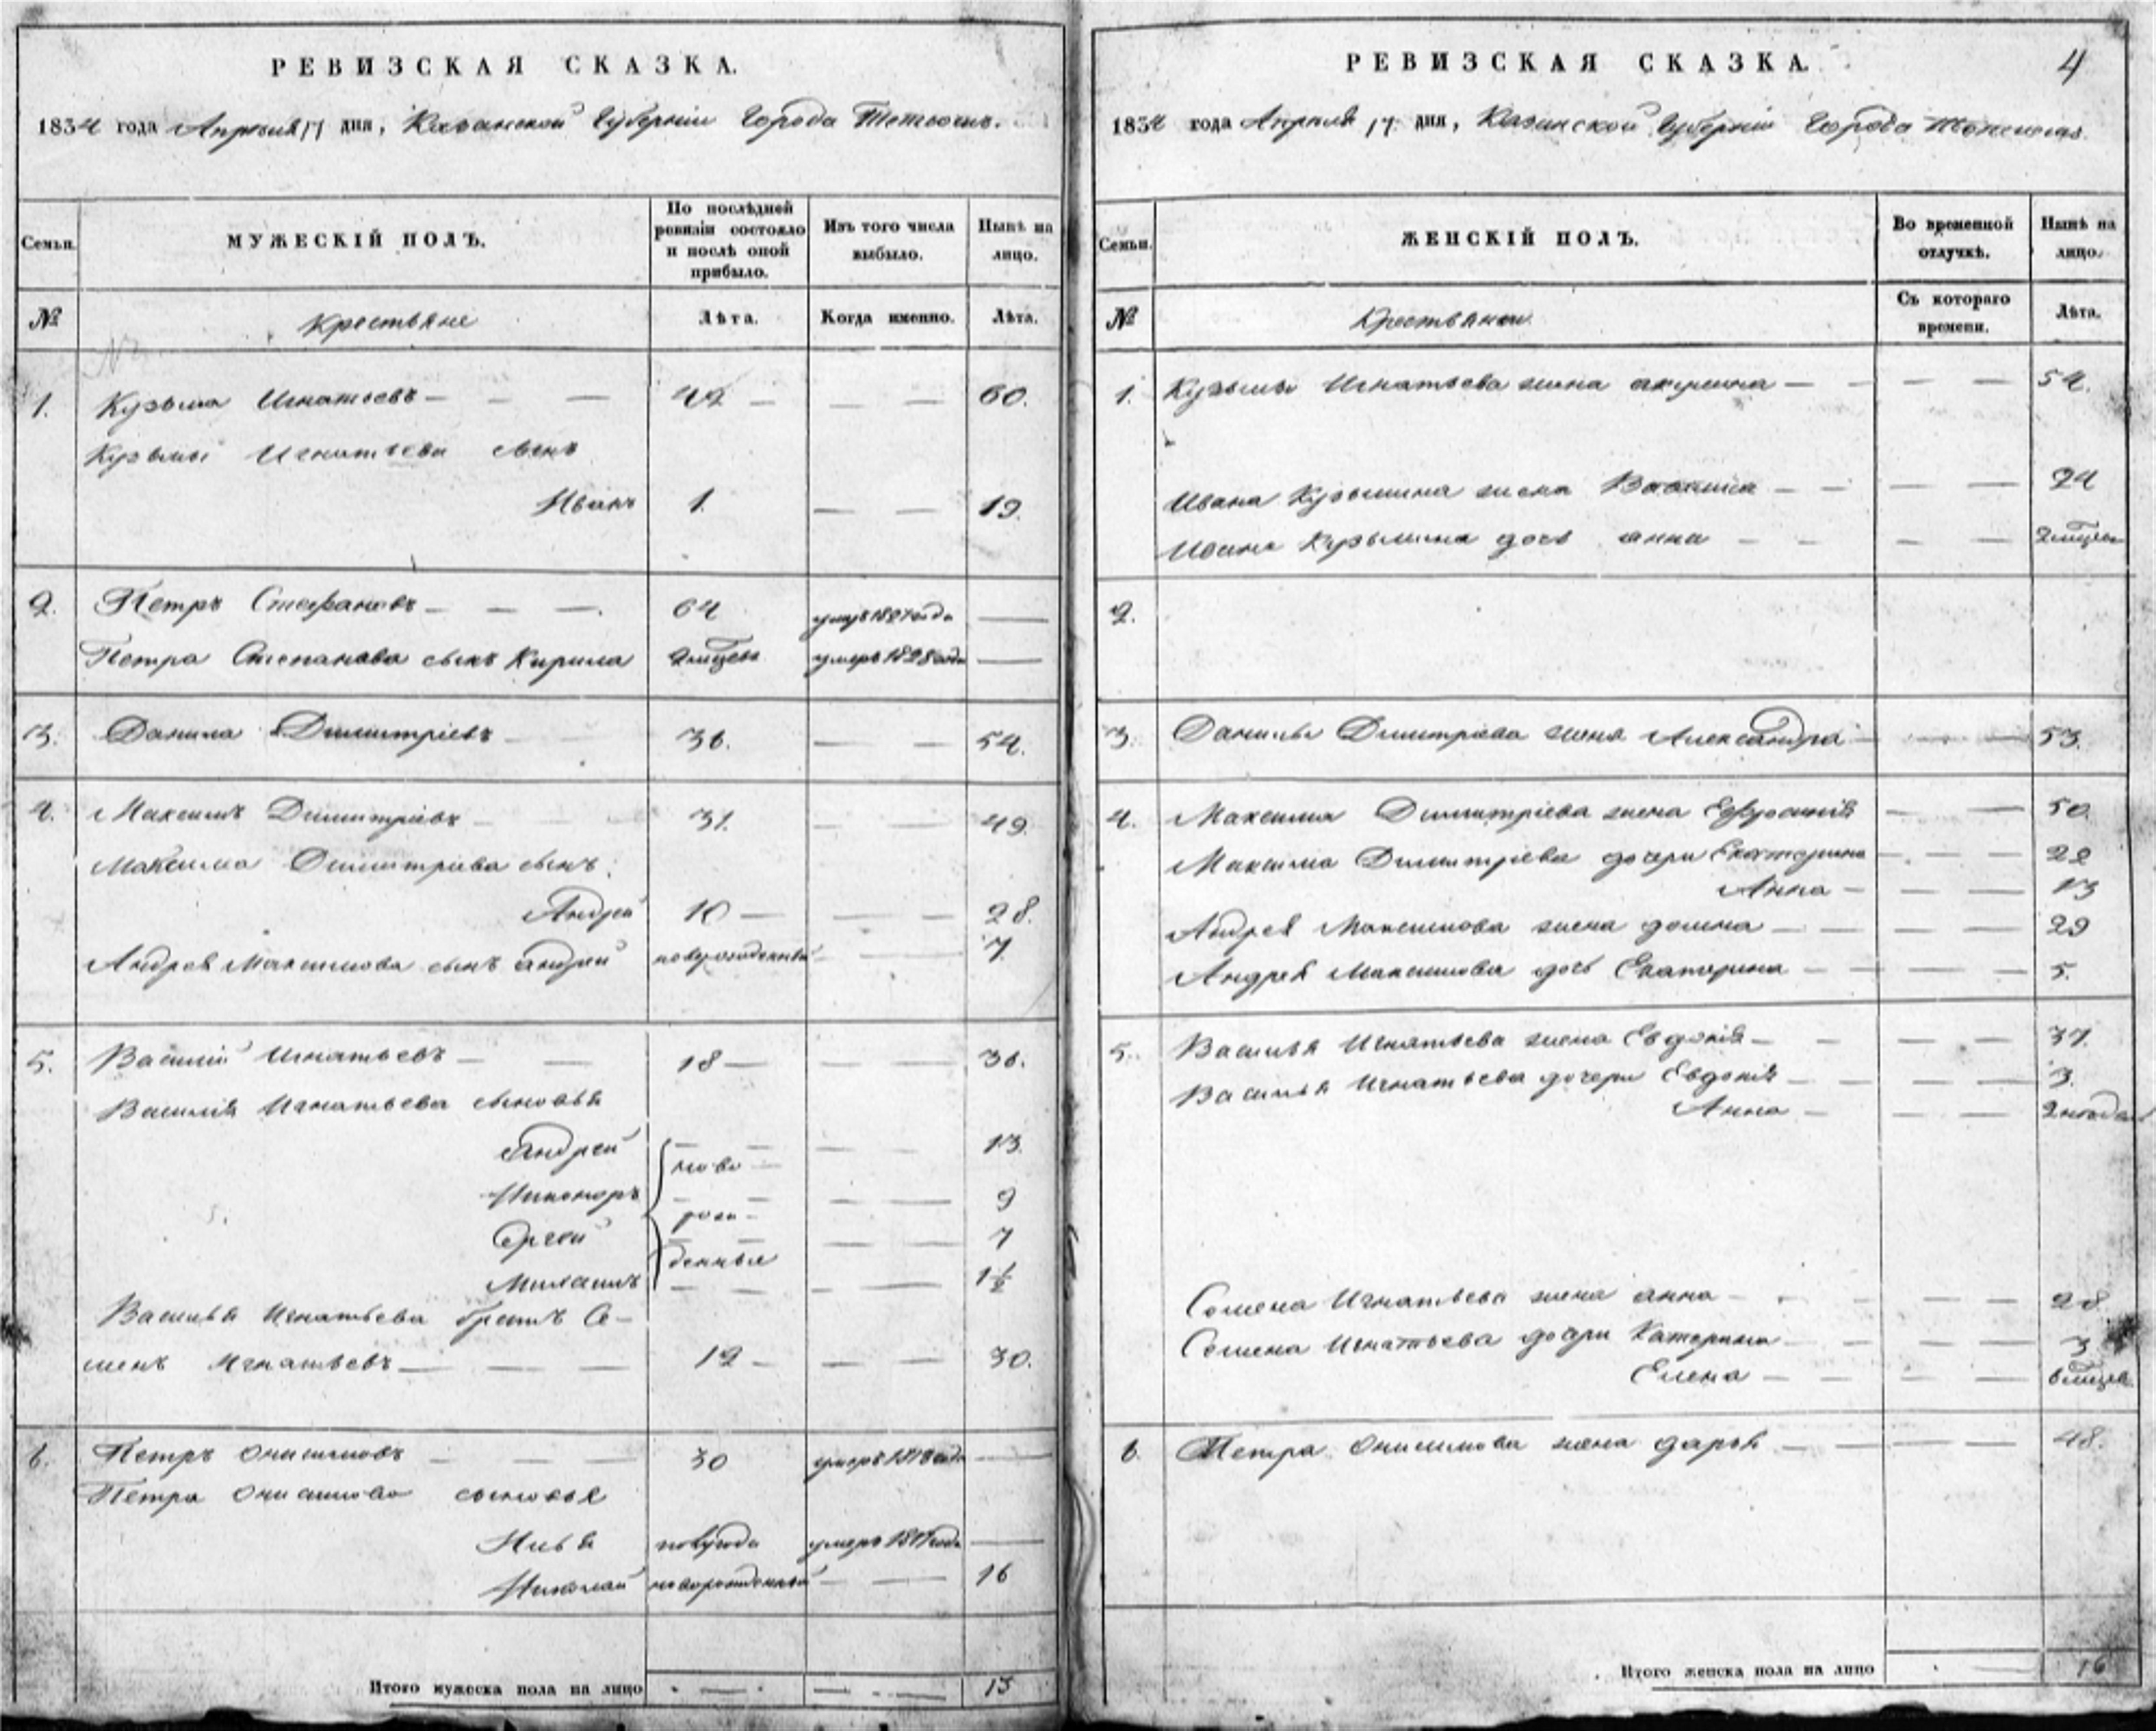 РЕВИЗСКАЯ СКАЗКА.
1834 года Апреля 17 дня, Казанской Губернiи Города Тетюшъ.
Семьи.
МУЖЕСКIЙ ПОЛЪ.
По послѣдней ревизiи состояло и послѣ оной прибыло.
Изъ того числа выбыло.
Нынѣ на лицо.
№
Крестьяне
Лѣта.
Когда именно.
Лѣта.
1. Кузьма Игнатьевъ — — — 42 — — — 60.
Кузьмы Игнатьева сынъ
Иванъ 1. — — 19.
2. Петръ Степановъ — — —. 64 умеръ 1821 года —
Петра Степанова сынъ Кирила 2 мѣсяца умеръ 1828 года —
3. Данила Димитрiевъ 36. — — 54.
4. Максимъ Димитрiевъ 31. — — 49
Максима Димитрiева сынъ:
Андрей 10 — — — 28.
Андрея Максимова сынъ Андрей новорожденный — — 7.
5. Василiй Игнатьевъ — — 18 — — — 36.
Василiя Игнатьева сыновья
Андрей — — — — 13.
ново —
Никоноръ — — — — 9
рож —
Сергей — — — — 7
денные
— — — — 1½
Василья Игнатьева братъ Се-
менъ Игнатьевъ — — — 12 — — — 30.
6. Петръ Онисимовъ — — — 30 умеръ года —
Петра Онисимова сыновья
Илья полугода умеръ года —
Николай новорожденный — — 16
Итого мужеска пола на лицо — — — 15
РЕВИЗСКАЯ СКАЗКА.
4
1834 года Апреля 17 дня, Казанской Губернiи Города
Семьи.
ЖЕНСКIЙ ПОЛЪ.
Во временной отлучкѣ.
Нынѣ на лицо.
№
Крестьянки
Съ котораго времени.
Лѣта.
1. Кузьмы Игнатьева жена акулина — — — — 54.
Ивана Кузьмина жена — — — — 24
Ивана Кузьмина дочь анна — — — — 2 мѣсяца
2.
3. Данилы Димитрiева жена Александра — — — 53.
4. Максима Димитрiева жена Ефросинiя — — 50.
Максима Димитрiева дочери Екатерина — — 22
Анна — — — 13
Андрея Максимова жена домна — — — — 29
Андрея Максимова дочь Екатерина — — — — 5.
5. Василья Игнатьева жена Евдокiя — — — — 37.
Василья Игнатьева дочери Евдокiя — — — — 3.
Анна — — —
Семена Игнатьева жена анна — — — 28
Семена Игнатьева дочери Катерина — — — 3
Елена — — — — 6 мѣсяцев
6. Петра Онисимова жена дарья — — — — 48.
Итого женска пола на лицо — — 16